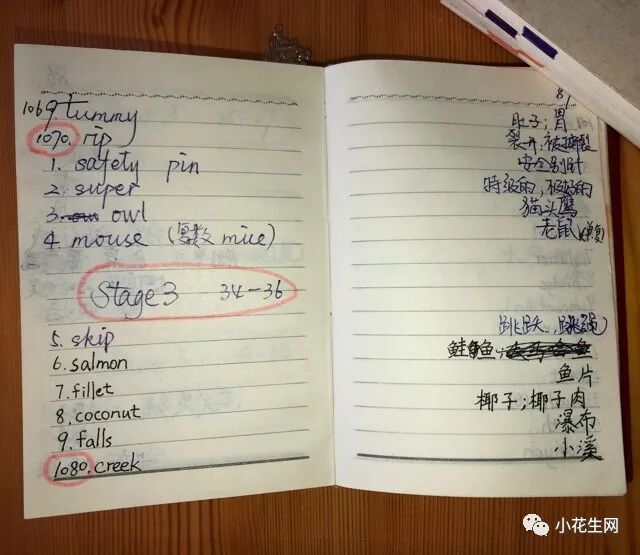 1069. tummy
1070. rip
1. safety pin
2. super
3. owl
4. mouse (复数 mice)
Stage 3 34-36
5. skip
6. salmon
7. fillet
8. coconut
9. falls
1080. creek
肚子；胃
裂开，被撕裂
安全别针
特级的，极好的
猫头鹰
老鼠(单复)
跳跃，跳绳
鲑鱼；
鱼片
椰子；椰子肉
瀑布
小溪
小花生网